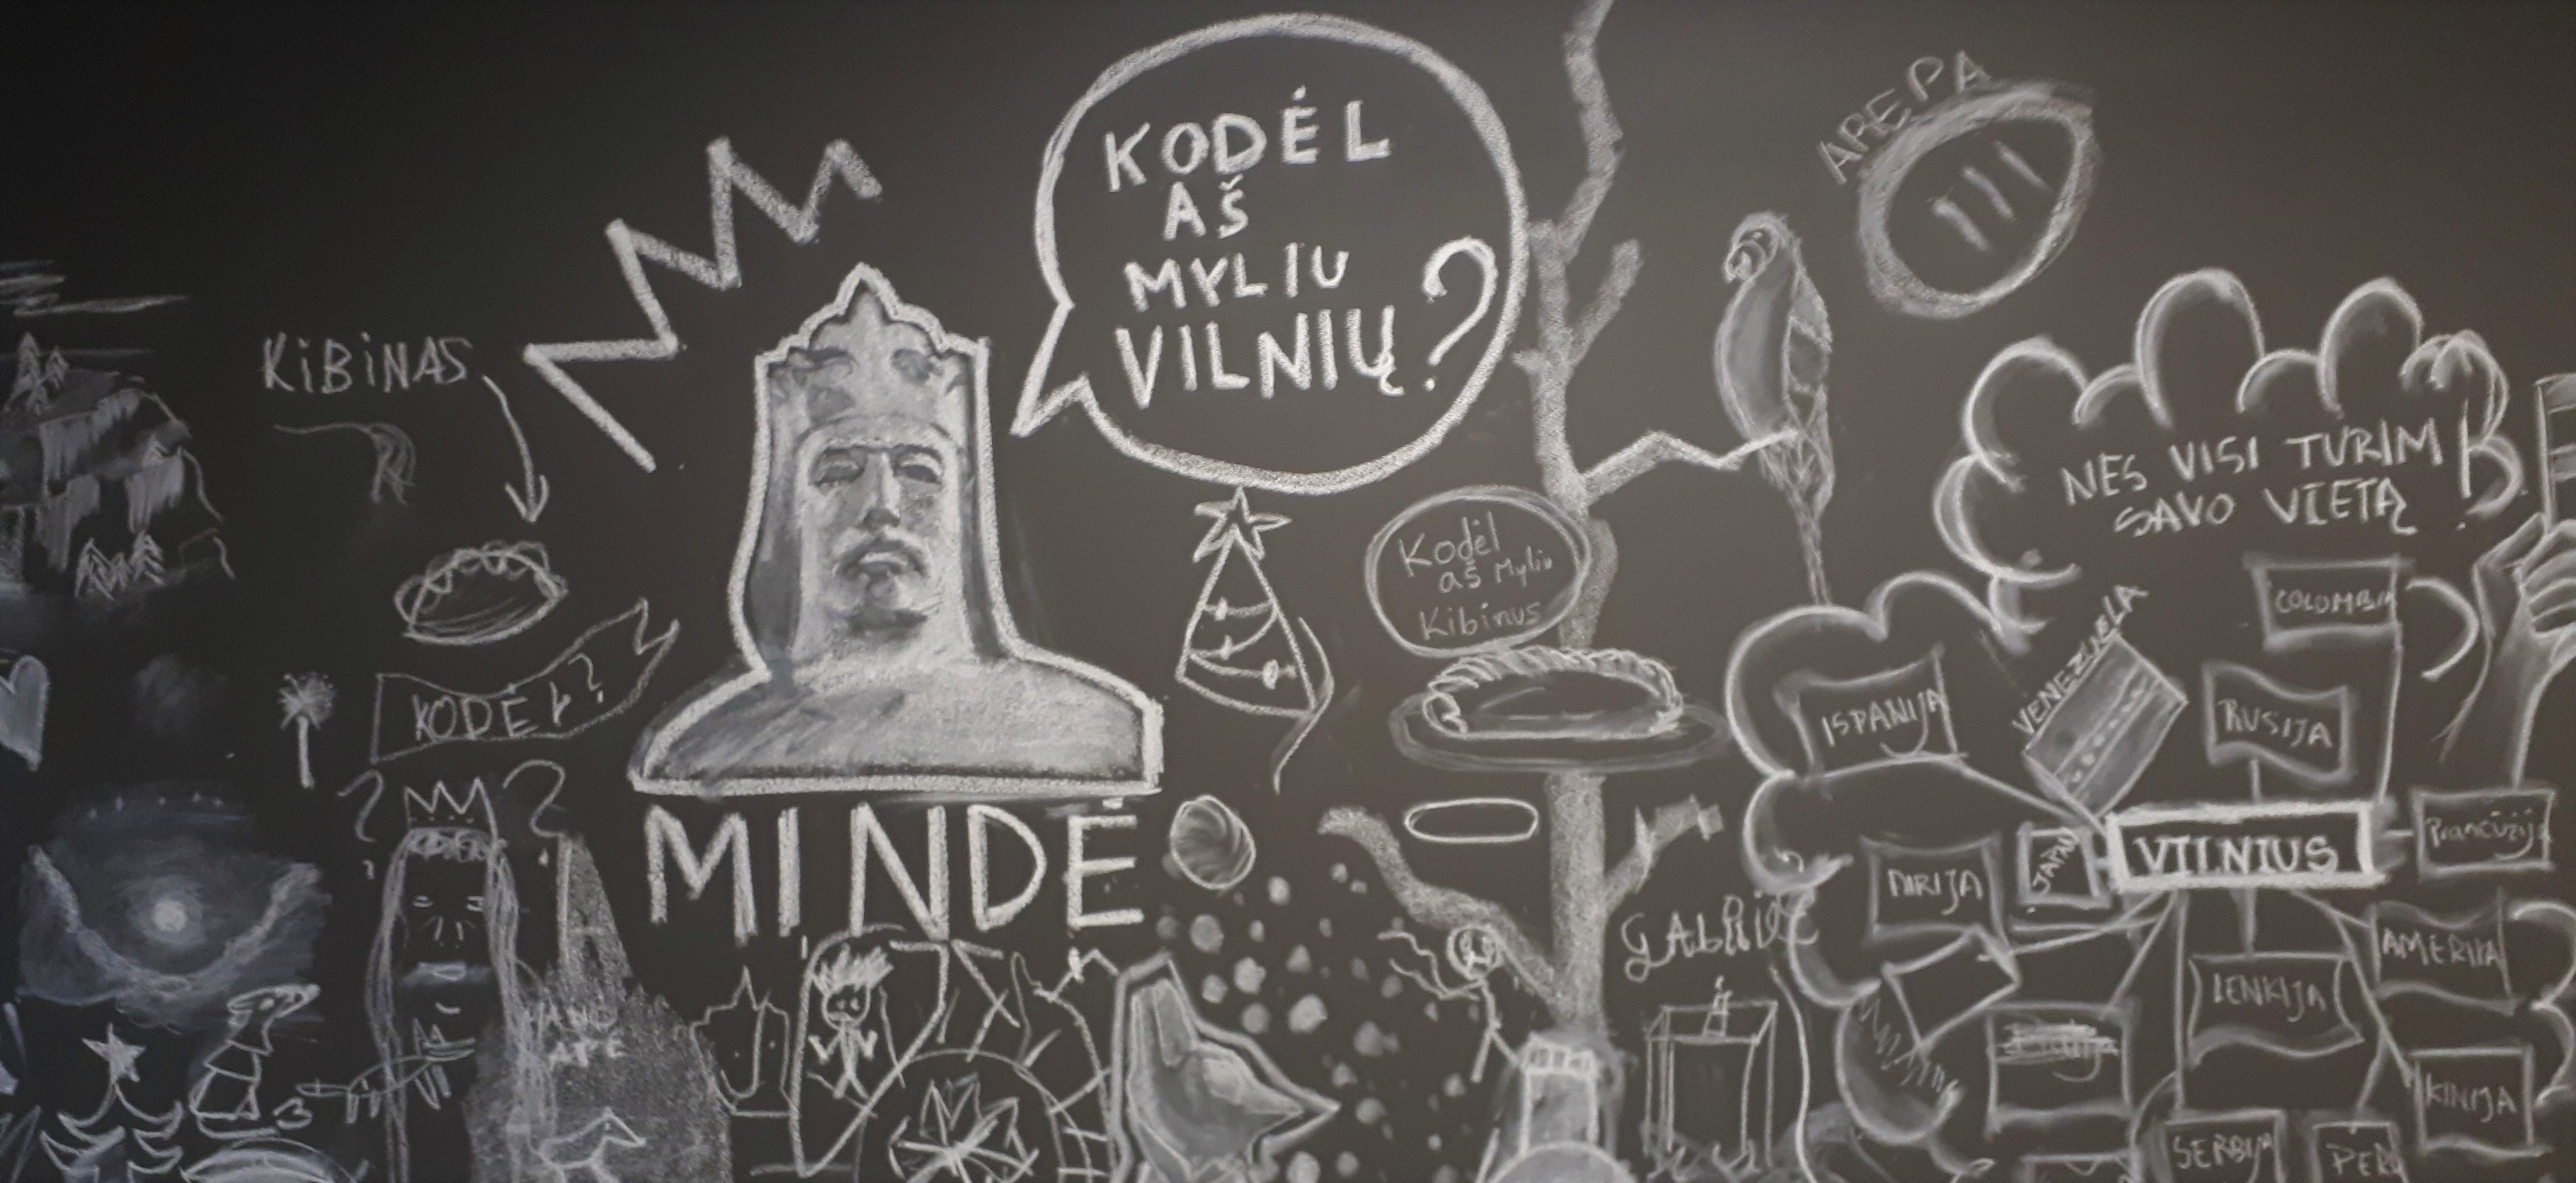 KODĖL
AŠ
MYLIU
VILNIŲ?
AREPA
KIBINAS
NES VISI TURIM
SAVO VIETĄ!
Kodėl
aš Myliu
Kibinus
KODĖL?
MINDĖ
COLOMBIA
VENEZUELA
ISPANIJA
RUSIJA
VILNIUS
Prancūzija
AIRIJA
JAPAN
AMERIKA
LENKIJA
KINIJA
SERBIJA
PERU